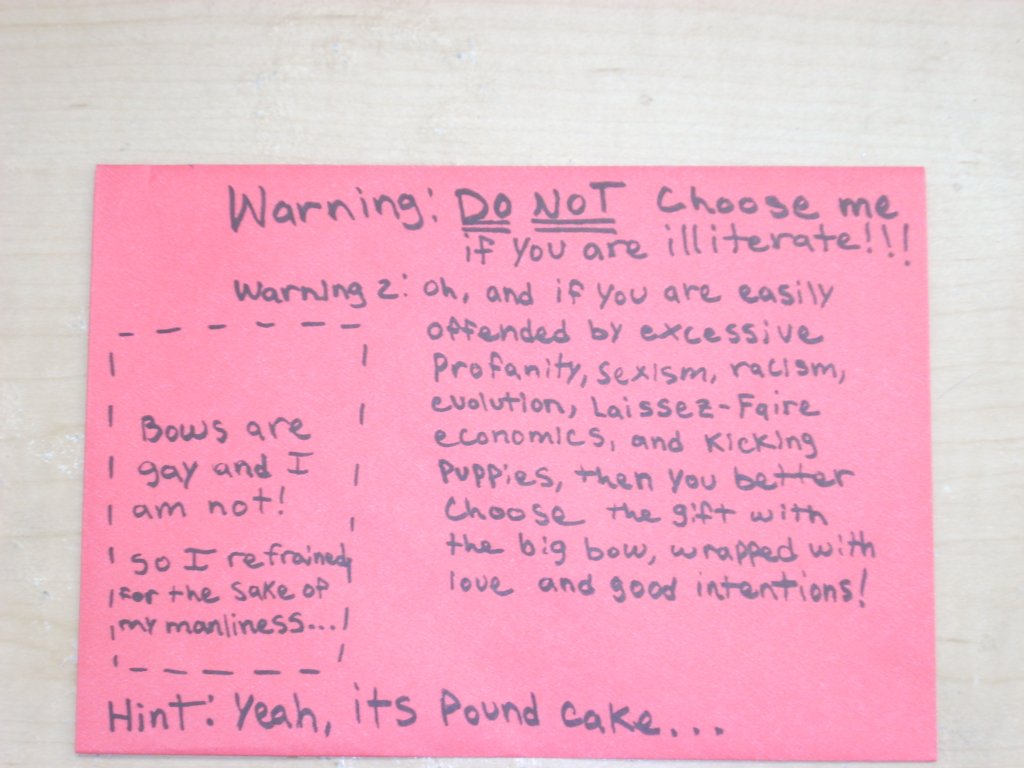 Warning: DO NOT Choose me
if you are illiterate!!!
Warning 2: oh, and if you are easily
offended by excessive
Profanity, sexism, racism,
evolution, Laissez-Faire
economics, and Kicking
Puppies, then you better
Choose the gift with
the big bow, wrapped with
love and good intentions!
Bows are
gay and I
am not!
so I refrained
for the sake of
my manliness...
Hint: Yeah, its Pound Cake...